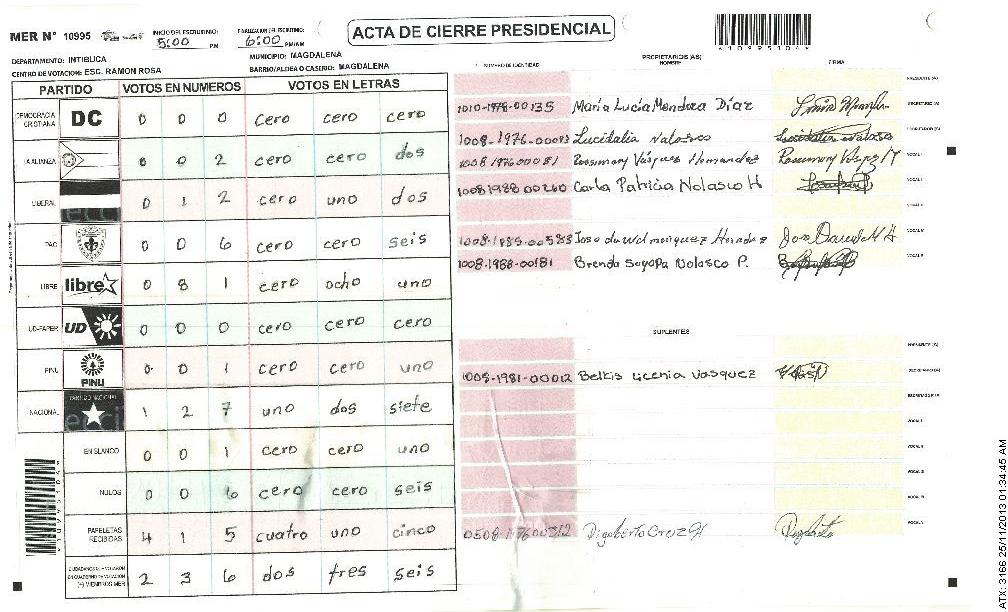 MER N° 10995
INICIO DEL ESCRUTINIO: 5:00 PM
FINALIZACION DEL ESCRUTINIO: 6:00 PM/AM
ACTA DE CIERRE PRESIDENCIAL
*10995104*
DEPARTAMENTO: INTIBUCA
MUNICIPIO: MAGDALENA
CENTRO DE VOTACION: ESC. RAMON ROSA
BARRIO/ALDEA O CASERIO: MAGDALENA
PARTIDO VOTOS EN NUMEROS VOTOS EN LETRAS
DEMOCRACIA CRISTIANA DC 0 0 0 cero cero cero
LA ALIANZA 0 0 2 cero cero dos
LIBERAL 0 1 2 cero uno dos
PAC 0 0 6 cero cero seis
LIBRE libre 0 8 1 cero ocho uno
UD-FAPER UD 0 0 0 cero cero cero
PINU PINU 0 0 1 cero cero uno
NACIONAL PARTIDO NACIONAL 1 2 7 uno dos siete
EN BLANCO 0 0 1 cero cero uno
NULOS 0 0 6 cero cero seis
PAPELETAS RECIBIDAS 4 1 5 cuatro uno cinco
CIUDADANOS QUE VOTARON EN CUADERNO DE VOTACION (+) MIEMBROS MER 2 3 6 dos tres seis
NUMERO DE IDENTIDAD PROPIETARIOS (AS) NOMBRE FIRMA
PRESIDENTE (A)
1010-1978-00135 María Lucía Mendoza Díaz SECRETARIO (A)
1008-1976-00083 Lucidalia Nolasco ESCRUTADOR (A)
1008 1976 00081 Rossmary Vásquez Hernandez VOCAL I
1008 1988 00260 Carla Patricia Nolasco H
1008-1985-00583
1008-1988-00181 Brenda Suyapa Nolasco P.
SUPLENTES
PRESIDENTE (A)
1008-1981-00012 Belkis Licenia Vasquez SECRETARIO (A)
ESCRUTADOR (A)
VOCAL I
VOCAL II
VOCAL III
VOCAL IV
VOCAL V
*10995104*
ATX: 3166 25/11/2013 01:34:45 AM